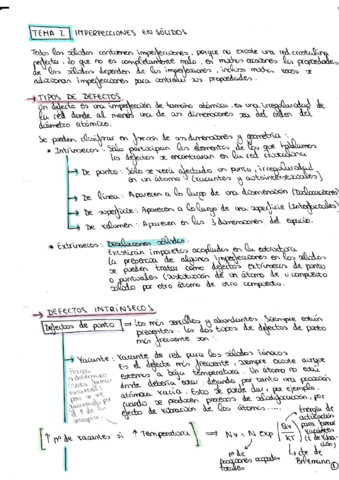 TEMA 2. IMPERFECCIONES EN SÓLIDOS
Todos los sólidos contienen imperfecciones, porque no existe una red cristalina
perfecta, lo que no es completamente malo, en muchas ocasiones las propiedades
de los sólidos dependen de las imperfecciones, incluso muchas veces se
adicionan imperfecciones para controlar sus propiedades.
→ TIPOS DE DEFECTOS
Un defecto es una imperfección de tamaño atómico, es una irregularidad de
la red donde al menos una de sus dimensiones sea del orden del
diámetro atómico.
Se pueden clasificar en función de sus dimensiones y geometría:
• Intrínsecos: Sólo participan los elementos de los que hablamos
los defectos se encontrarán en la red cristalina
→ De punto: Sólo se vería afectado un punto, irregularidad
en un átomo (vacantes y autointersticiales)
→ De línea: Aparecen a lo largo de una dimensión (Dislocaciones)
→ De superficie: Aparecen a lo largo de una superficie (Interfaciales)
→ De volumen: Aparecen en las 3 dimensiones del espacio.
• Extrínsecos: Disoluciones sólidas.
Existirán impurezas acopladas en la estructura
la presencia de algunas imperfecciones en los sólidos
se pueden tratar como defectos extrínsecos de punto
o puntuales (sustitución de un átomo de un compuesto
sólido por otro átomo de otro compuesto.
→ DEFECTOS INTRÍNSECOS
Defectos de punto ⇒ Los más sencillos y abundantes. Siempre están
presentes. Los dos tipos de defectos de punto
más frecuente son:
→ Vacante: Vacante de red para los sólidos iónicos
Es el defecto más frecuente, siempre existe aunque
estemos a baja temperatura. Un átomo no está
donde debería estar, dejando por tanto una posición
atómica vacía. Esto se puede dar, por ejemplo,
cuando se producen procesos de solidificación, por
efecto de vibración de los átomos ....
[↑ Nº de vacantes si ↑ Temperatura] ⇒ Nv = N exp (-Qv / KT)
Energía de
activación
para formar
vacantes
cte de
Boltzmann
Nº de
totales
1